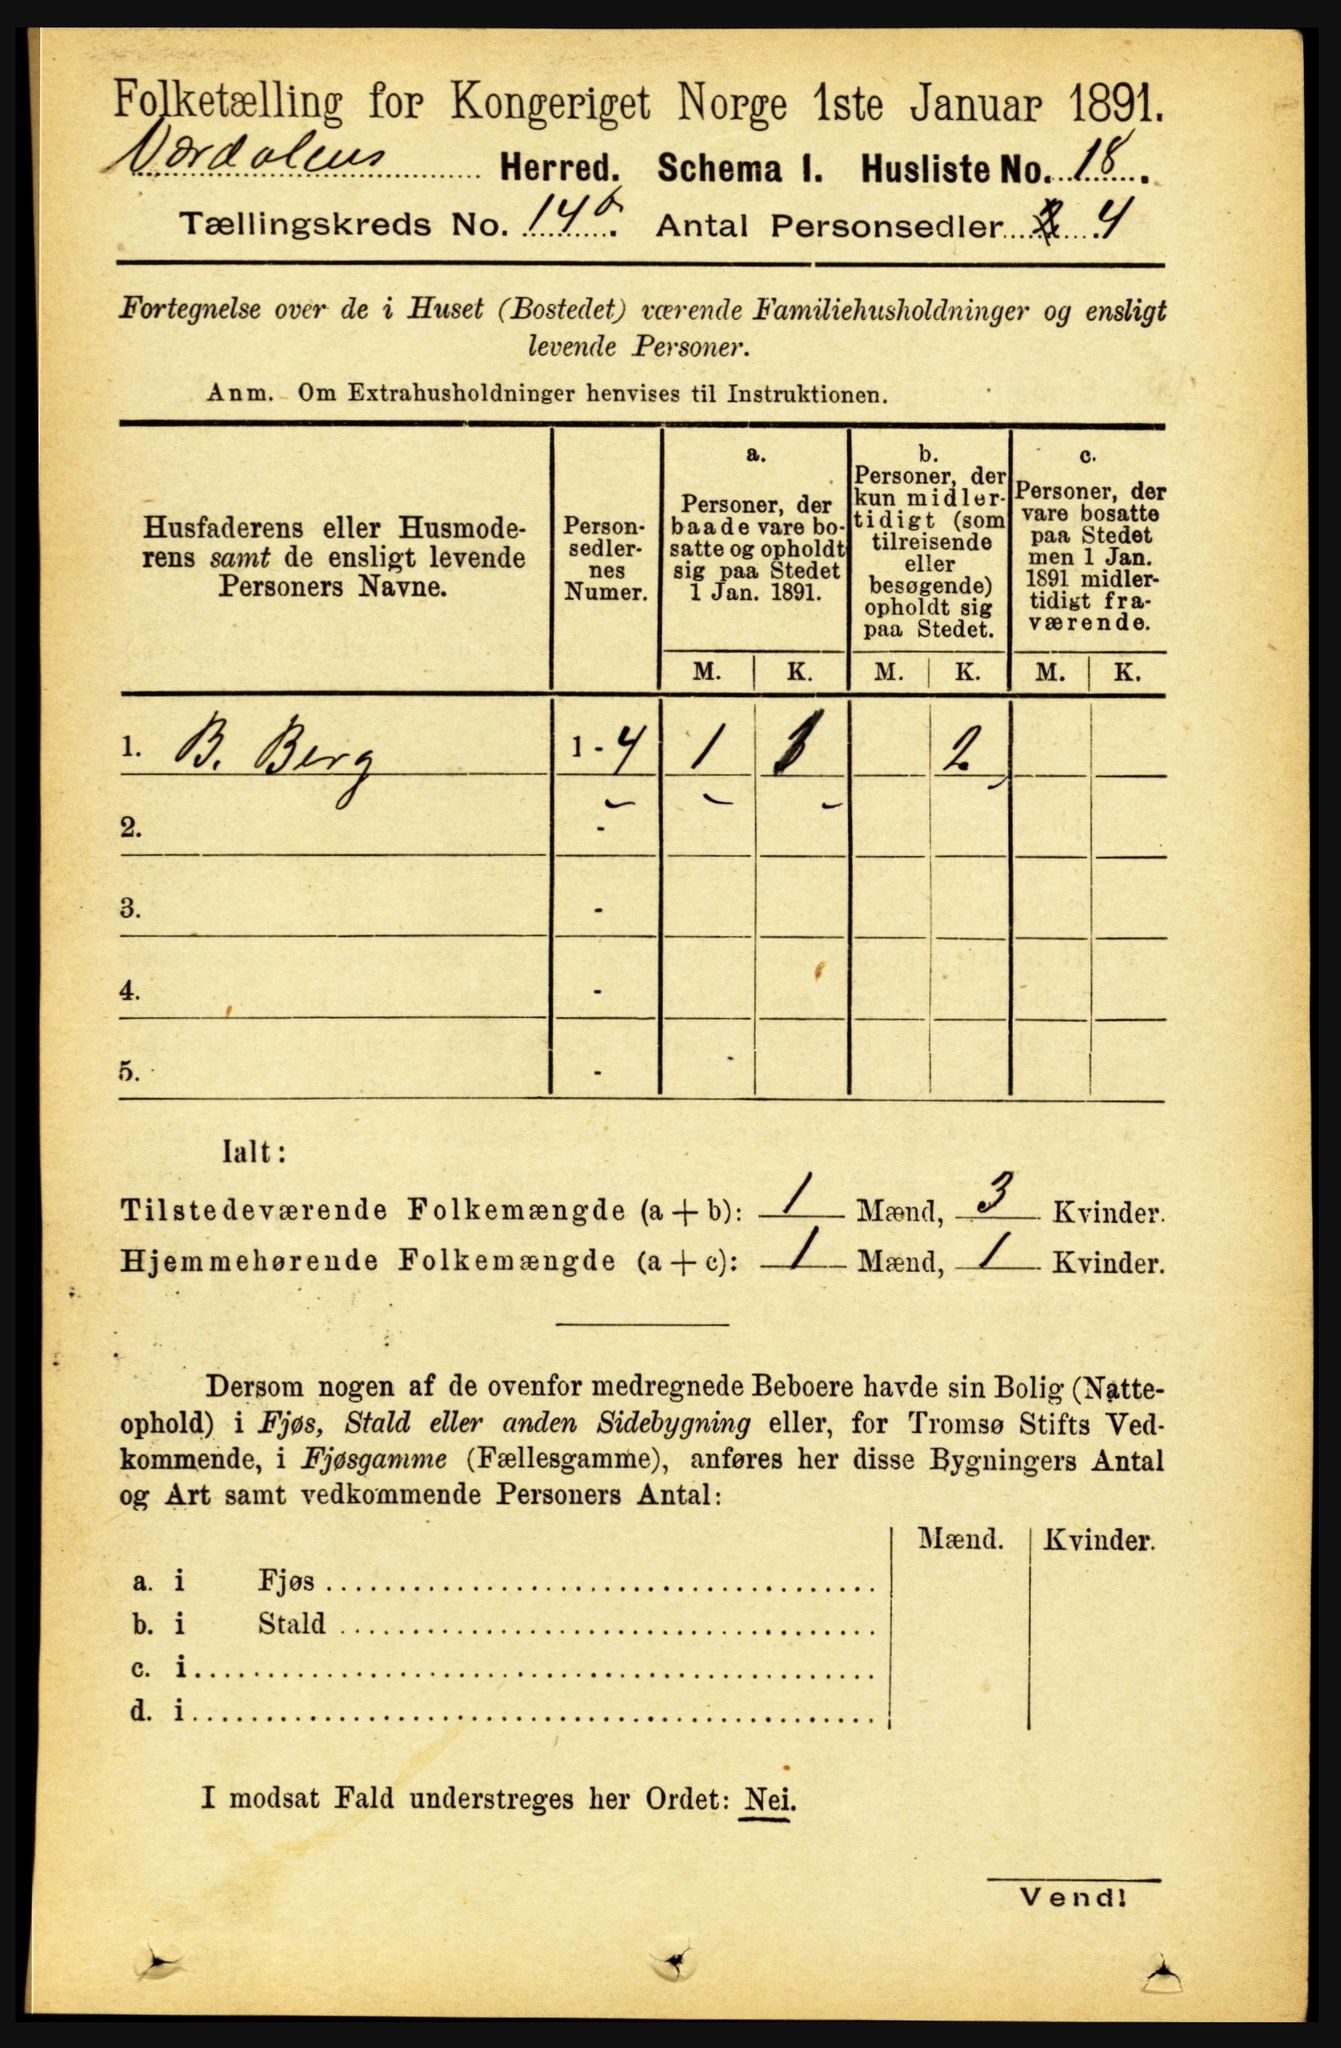 Folketælling for Kongeriget Norge 1ste Januar 1891.
Værdalens Herred. Schema I. Husliste No. 18.
Tællingskreds No. 14b. Antal Personsedler 4
Fortegnelse over de i Huset (Bostedet) værende Familiehusholdninger og ensligt
levende Personer.
Anm. Om Extrahusholdninger henvises til Instruktionen.
Husfaderens eller Husmode-
rens samt de ensligt levende
Personers Navne.
Person-
sedler-
nes
Numer.
a.
Personer, der
baade vare bo-
satte og opholdt
sig paa Stedet
1 Jan. 1891.
b.
Personer, der
kun midler-
tidigt (som
tilreisende
eller
besøgende)
opholdt sig
paa Stedet.
c.
Personer, der
vare bosatte
paa Stedet
men 1 Jan.
1891 midler-
tidigt fra-
værende.
M. K. M. K. M. K.
1. B. Berg 1 - 4 1 1 2
2. -
3. -
4. -
5. -
Ialt:
Tilstedeværende Folkemængde (a + b): 1 Mænd, 3 Kvinder.
Hjemmehørende Folkemængde (a + c): 1 Mænd, 1 Kvinder.
Dersom nogen af de ovenfor medregnede Beboere havde sin Bolig (Natte-
ophold) i Fjøs, Stald eller anden Sidebygning eller, for Tromsø Stifts Ved-
kommende, i Fjøsgamme (Fællesgamme), anføres her disse Bygningers Antal
og Art samt vedkommende Personers Antal:
Mænd. Kvinder.
a. i Fjøs
b. i Stald
c. i
d. i
I modsat Fald understreges her Ordet: Nei.
Vend!